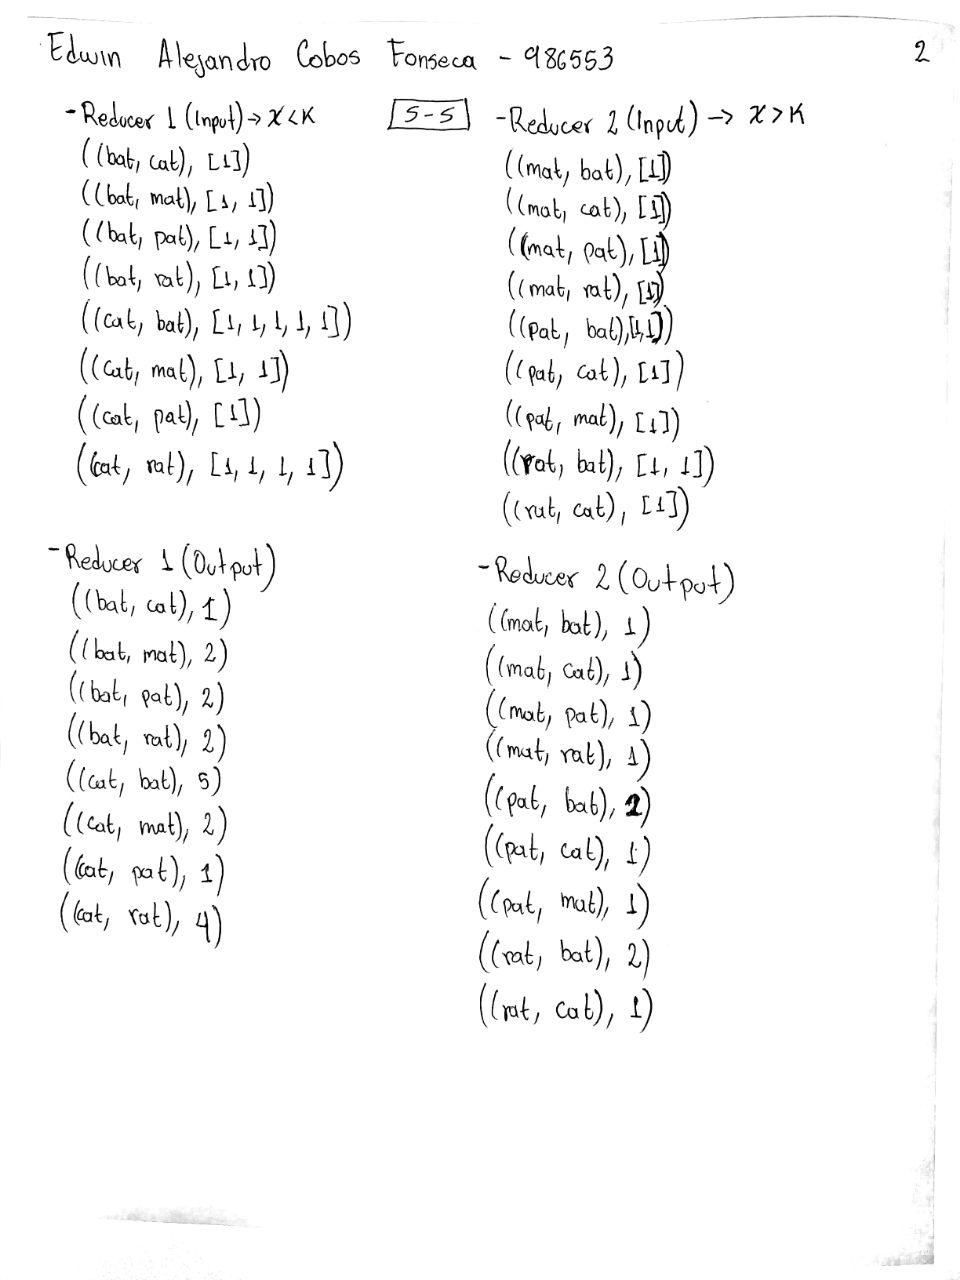 Edwin Alejandro Cobos Fonseca - 986553
2
- Reducer 1 (Input) → X<K
((bat, cat), [1])
((bat, mat), [1, 1])
((bat, pat), [1, 1])
((bat, rat), [1, 1])
((cat, bat), [1, 1, 1, 1, 1])
((cat, mat), [1, 1])
((cat, pat), [1])
((cat, rat), [1, 1, 1, 1])
S-S
- Reducer 2 (Input) → X>K
((mat, bat), [1])
((mat, cat), [1])
((mat, pat), [1])
((mat, rat), [1])
((pat, bat), [1, 1])
((pat, cat), [1])
((pat, mat), [1])
((rat, bat), [1, 1])
((rat, cat), [1])
- Reducer 1 (Output)
((bat, cat), 1)
((bat, mat), 2)
((bat, pat), 2)
((bat, rat), 2)
((cat, bat), 5)
((cat, mat), 2)
((cat, pat), 1)
((cat, rat), 4)
- Reducer 2 (Output)
((mat, bat), 1)
((mat, cat), 1)
((mat, pat), 1)
((mat, rat), 1)
((pat, bat), 2)
((pat, cat), 1)
((pat, mat), 1)
((rat, bat), 2)
((rat, cat), 1)